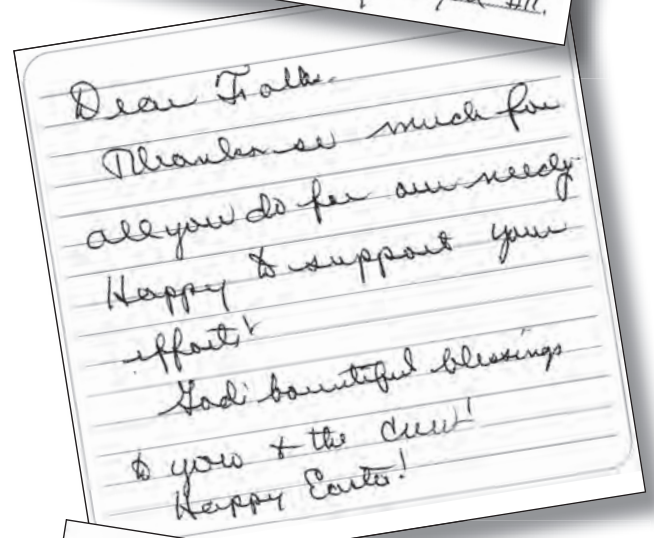 Dear Folks.
Thanks so much for
all you do for our needy
Happy to support your
efforts!
God's bountiful blessings
to you & the crew!
Happy Easter!